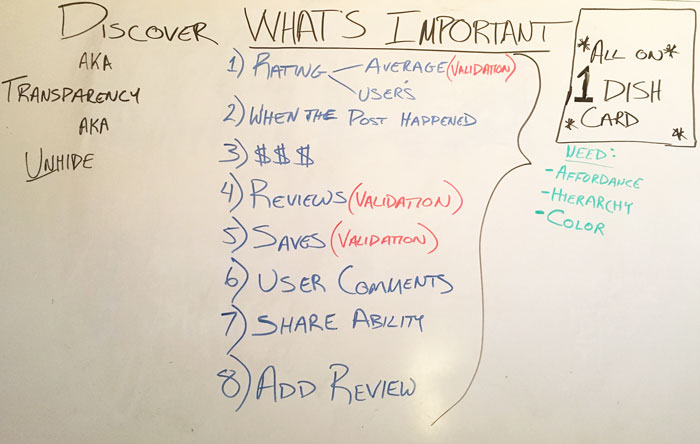 DISCOVER WHAT'S IMPORTANT
AKA
TRANSPARENCY
AKA
UNHIDE
1) RATING - AVERAGE (VALIDATION)
USER'S
2) WHEN THE POST HAPPENED
3) $$$
4) REVIEWS (VALIDATION)
5) SAVES (VALIDATION)
6) USER COMMENTS
7) SHARE ABILITY
8) ADD REVIEW
*ALL ON*
1 DISH
*CARD *
NEED:
-AFFORDANCE
-HIERARCHY
-COLOR